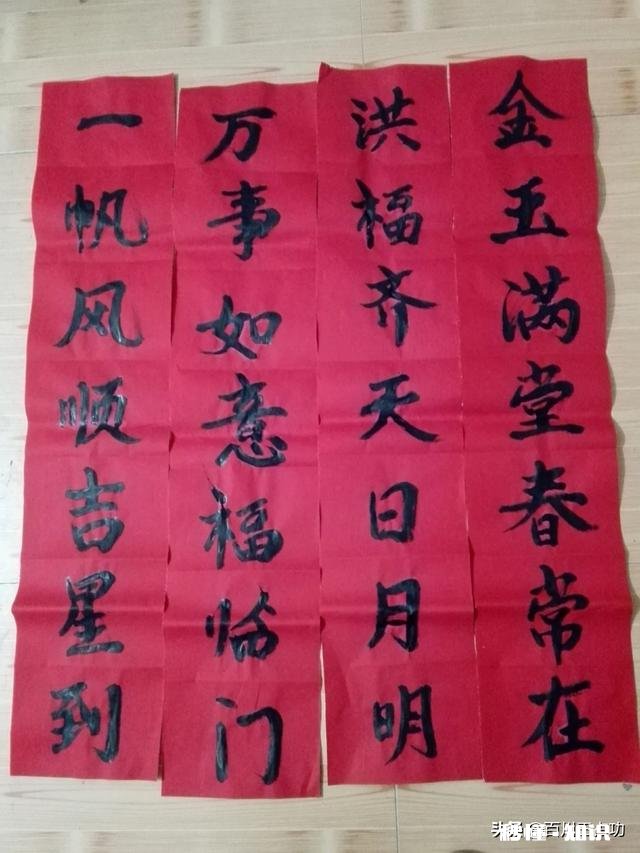 金玉满堂春常在
洪福齐天日月明
万事如意福临门
一帆风顺吉星到
知识